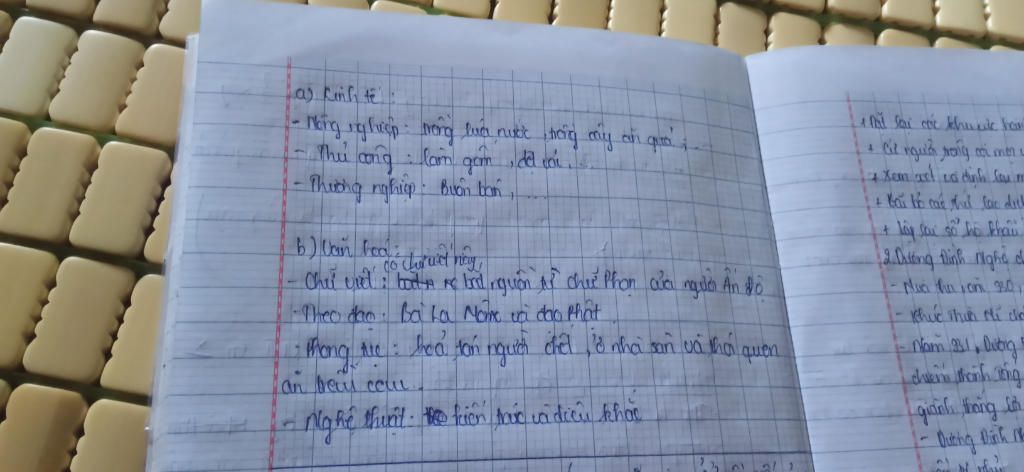 a) Kinh tế :
- Nông nghiệp : trồng lúa nước , trồng cây ăn quả , ...
- Thủ công : làm gốm , dệt vải ...
- Thương nghiệp : Buôn bán , ...
b) Văn hoá :
có chữ viết riêng,
- Chữ viết : bắt nguồn từ chữ Phạn của người Ấn Độ
- Theo đạo : Bà La Môn và đạo Phật
- Phong tục : hoả táng người chết , ở nhà sàn và thói quen
ăn trầu cau .
- Nghệ thuật : kiến trúc và điêu khắc
+ Đặt lại các khu vực hành
+ Cử người trong coi mọi
+ Xem xét và định lại m
+ Bãi bỏ các thứ lao dịch
+ lập lại sổ hộ khẩu
2. Dương Đình Nghệ
- Mùa thu năm 930,
- Khúc Thừa Mĩ
- Năm 931, Dương Đ
chiếm thành Tống
giành thắng lợi
- Dương Đình N